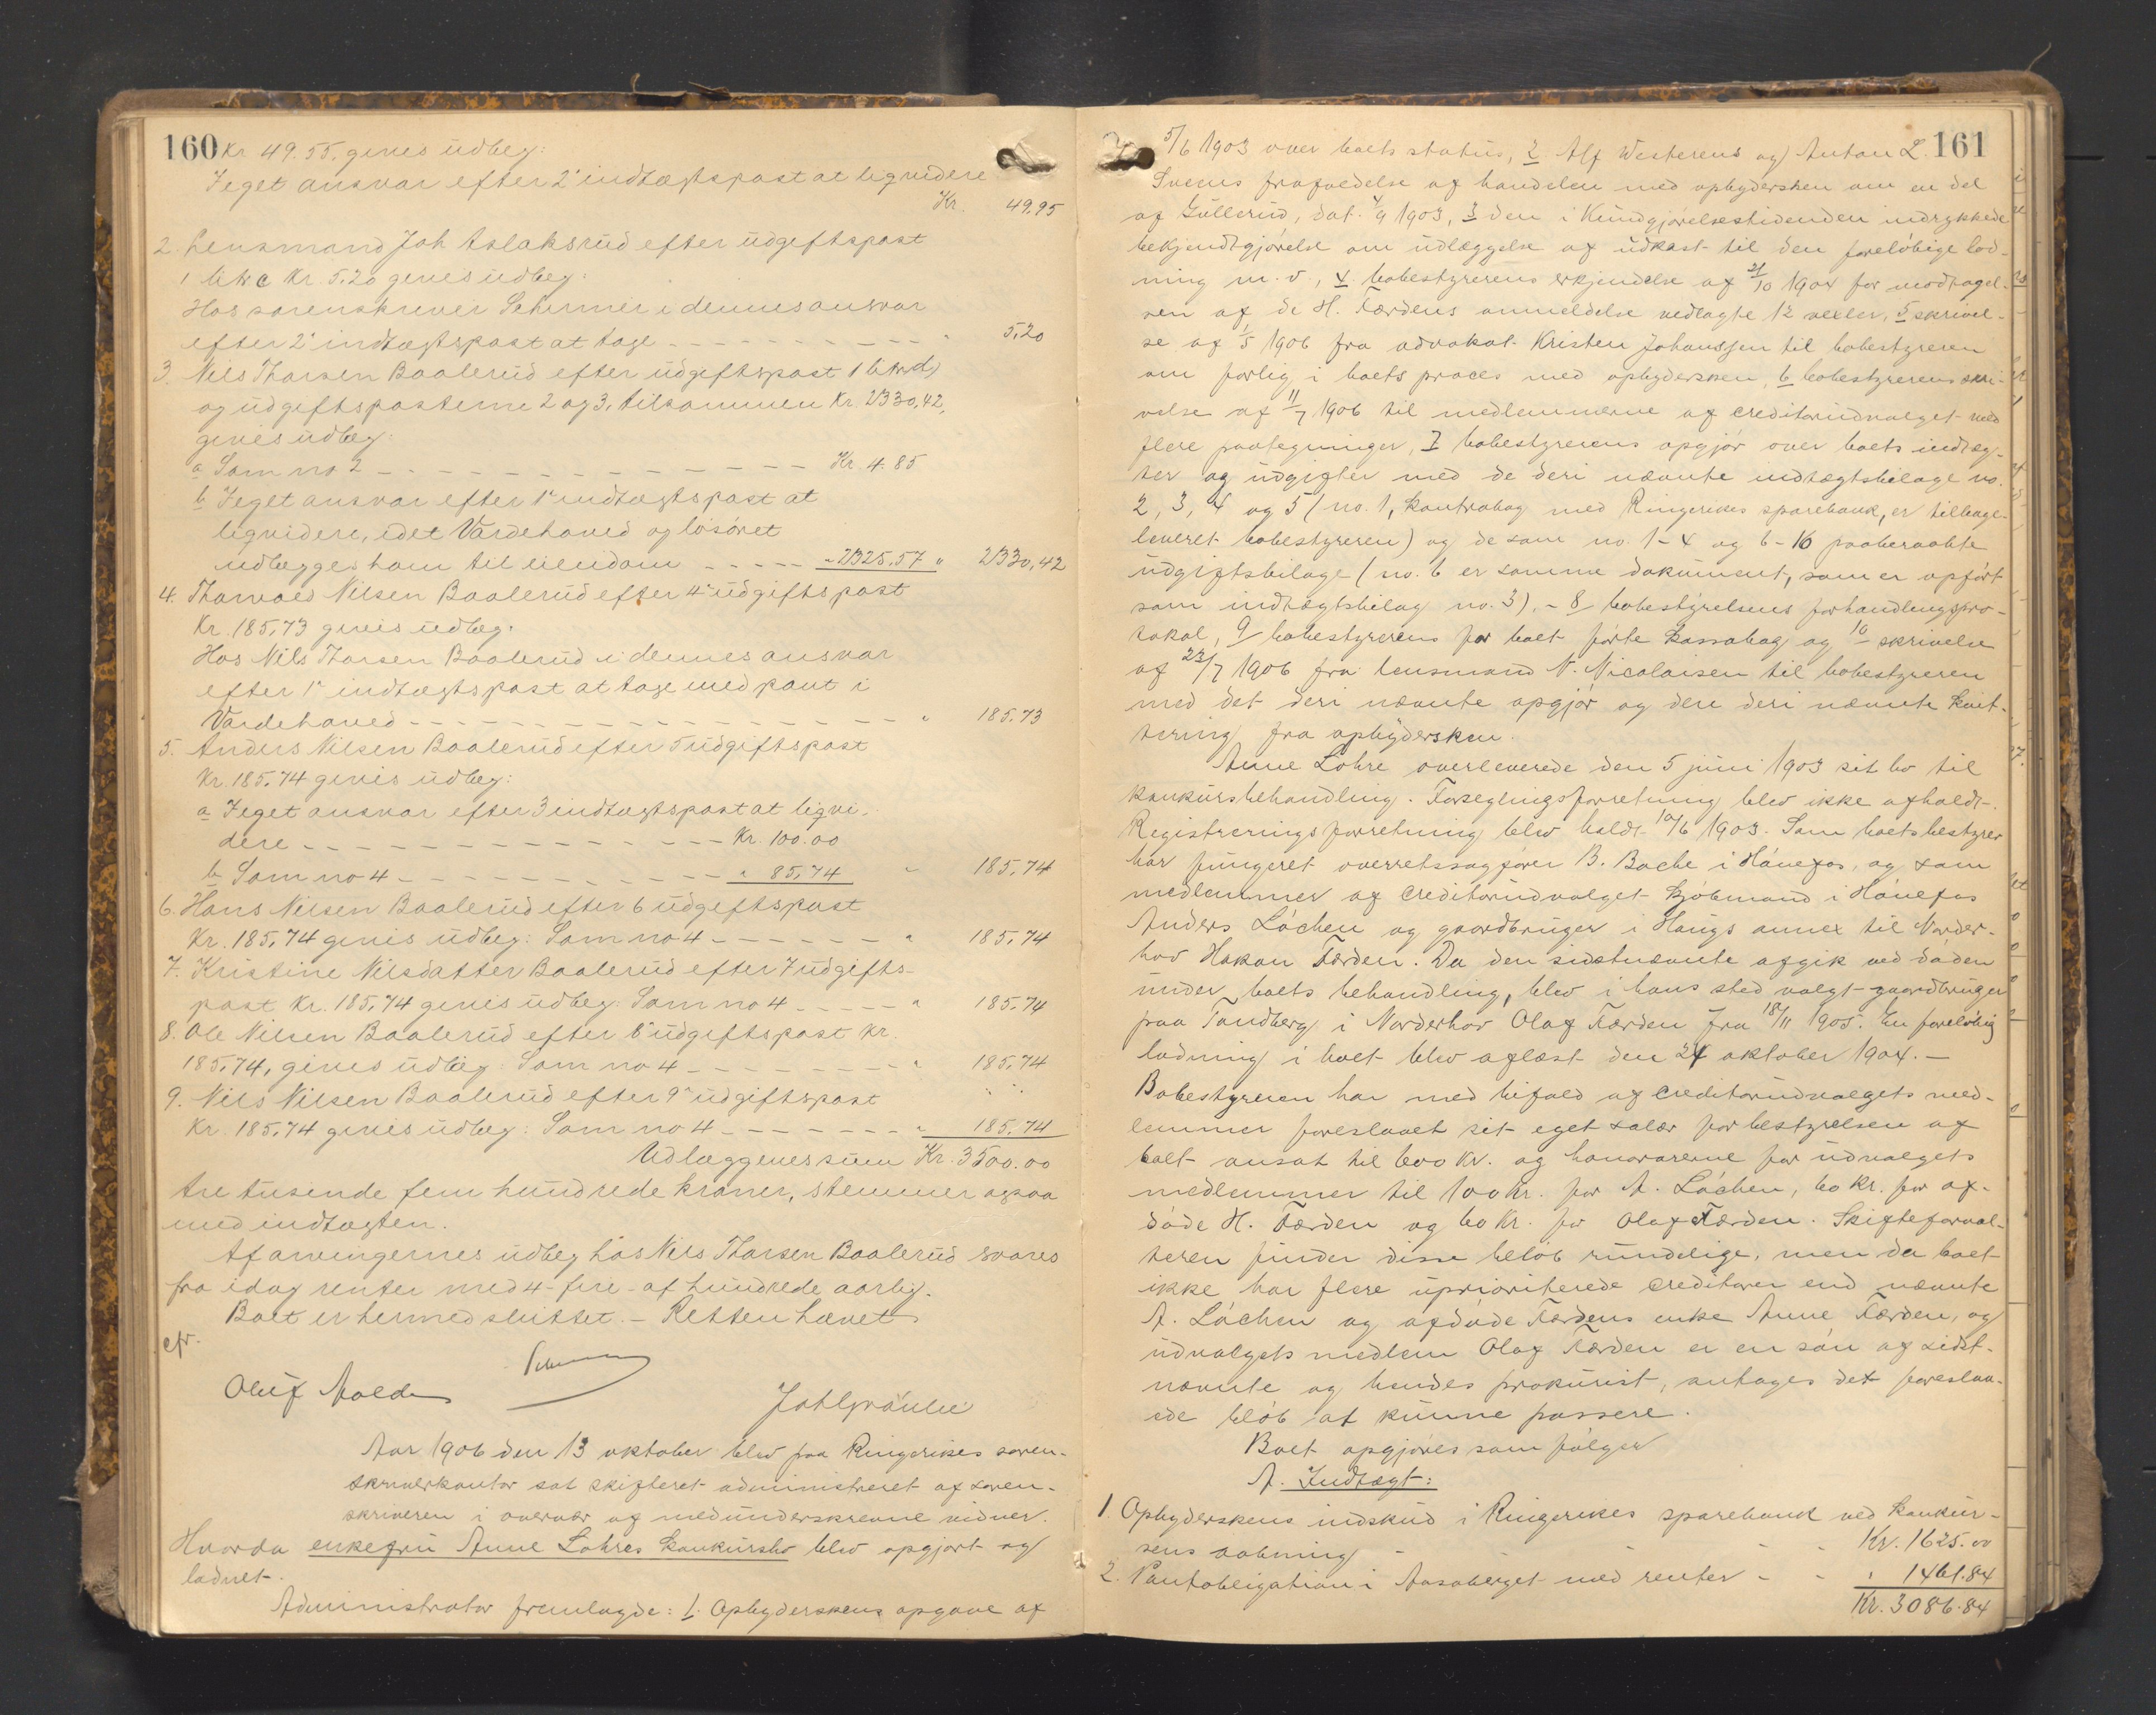 160
Kr 49.55. gives udlæg:
I eget ansvar efter 2' indtægtspost at liqvidere
Kr. 49.95
2. Lensmand Joh Aslaksrud efter udgiftspost
1 litr c Kr. 5.20 gives udlæg:
Hos sorenskriver Schirmer i dennes ansvar
efter 2' indtægtspost at tage - - - - " 5.20
3. Nils Thorsen Baalerud efter udgiftspost 1 litr d,
og udgiftsposterne 2 og 3, tilsammen Kr. 2330,42,
gives udlæg:
a Som no 2 - - - - Kr. 4.85
b I eget ansvar efter 1' indtægtspost at
liqvidere, idet Vardehaved og løsøret
udlægges ham til eiendom - - - - " 2325.57 " 2330,42
4. Thorvald Nilsen Baalerud efter 4' udgiftspost
Kr. 185,73 gives udlæg.
Hos Nils Thorsen Baalerud i dennes ansvar
efter 1' indtægtspost at tage med pant i
Vardehaved - - - - " 185.73
5. Anders Nilsen Baalerud efter 5 udgiftspost
Kr. 185.74 gives udlæg:
a I eget ansvar efter 3 indtægtspost at liqvi-
dere - - - - Kr. 100.00
b Som no 4 - - - - " 85,74 " 185,74
6. Hans Nilsen Baalerud efter 6 udgiftspost
Kr. 185,74 gives udlæg: Som no 4 - - - - " 185,74
7. Kristine Nilsdatter Baalerud efter 7 udgifts-
post Kr. 185,74 gives udlæg: Som no 4 - - - - " 185,74
8. Ole Nilsen Baalerud efter 8' udgiftspost Kr.
185,74, gives udlæg: Som no 4 - - - - " 185,74
9. Nils Nilsen Baalerud efter 9' udgiftspost
Kr. 185,74 gives udlæg: Som no 4 - - - - " 185,74
Udlæggenes sum Kr. 3500.00
tre tusende fem hundrede kroner, stemmer ogsaa
med indtægten.
Af arvingernes udlæg hos Nils Thorsen Baalerud svares
fra idag renter med 4 - fire - af hundrede aarlig.
Boet er hermed sluttet. - Retten hævet
cfr.
Oluf Molde
Aar 1906 den 13 oktober blev paa Ringerikes soren-
skriverkontor sat skifteret administreret af soren-
skriveren i overvær af medunderskrevne vidner.
Hvorda enkefru Anne Lohres konkursbo blev opgjort og
lodnet.
Administrator fremlagde: 1. Opbyderskens opgave af
161
5/6 1903 over boets status, 2 Alf Westerens og Anton L.
Svens frafaldelse af handelen med opbydersken om en del
af Gullerud, dat. 4/9 1903, 3 den i Kundgjørelsestidenden indrykkede
bekjendtgjørelse om udlæggelse af udkast til den foreløbige lod-
ning m. v., 4 bobestyrerens erkjendelse af 21/10 1904 for modtagel-
sen af de H. Færdens anmeldelse vedlagte 12 vexler, 5 skrivel-
se af 1/5 1906 fra advokat Kristen Johanssen til bobestyreren
om forlig i boets proces med opbydersken, 6 bobestyrerens skri-
velse af 11/7 1906 til medlemmerne af creditorudvalget med
flere paategninger, 7 bobestyrerens opgjør over boets indtæg-
ter og udgifter med de deri nævnte indtægtsbilage no.
2, 3, 4 og 5 (no. 1, kontrabog med Ringerikes sparebank, er tilbage-
leveret bobestyreren) og de som no. 1-4 og 6-16 paaberaabte
udgiftsbilage (no. 6 er samme dokument, som er opført
som indtægtsbilag no. 3), - 8 bobestyrelsens forhandlingspro-
tokol, 9 bobestyrerens for boet førte kassabog og 10 skrivelse
af 23/7 1906 fra lensmand N. Nicolaisen til bobestyreren
med det deri nævnte opgjør og den deri nævnte kvit-
tering fra opbydersken.
Anne Lohre overleverede den 5 juni 1903 sit bo til
konkursbehandling. Forseglingsforretning blev ikke afholdt-.
Registreringsforretning blev holdt 10/6 1903. Som boets bestyrer
har fungeret overretssagfører B. Bache i Hønefos, og som
medlemmer af creditorudvalget kjøbmand i Hønefos
Anders Løchen og gaardbruger i Haugs annex til Norder-
hov Hakon Færden. Da den sidstnævnte afgik ved døden
under boets behandling, blev i hans sted valgt gaardbruger
paa Tandberg i Norderhov Olaf Færden fra 18/11 1905. En foreløbig
lodning i boet blev aflæst den 24 oktober 1904. -
Bobestyreren har med bifald af creditorudvalgets med-
lemmer foreslaaet sit eget salær for bestyrelsen af
boet ansat til 600 Kr. og honorarerne for udvalgets
medlemmer til 100 Kr. for A. Løchen, 60 Kr. for af-
døde H. Færden og 60 Kr. for Olaf Færden. Skifteforval-
teren finder disse beløb rundelige, men da boet
ikke har flere uprioriterede creditorer end nævnte
A. Løchen og afdøde Færdens enke Anne Færden, og
udvalgets medlem Olaf Færden er en søn af sidst-
nævnte og hendes prokurist, antages det foreslaa-
ede beløb at kunne passere.
Boet opgjøres som følger
A. Indtægt:
1. Opbyderskens indskud i Ringerikes sparebank ved konkur-
sens aabning - - - - Kr. 1625.00
2. Pantobligation i Aasaberget med renter - - " 1461.84
Kr. 3086.84